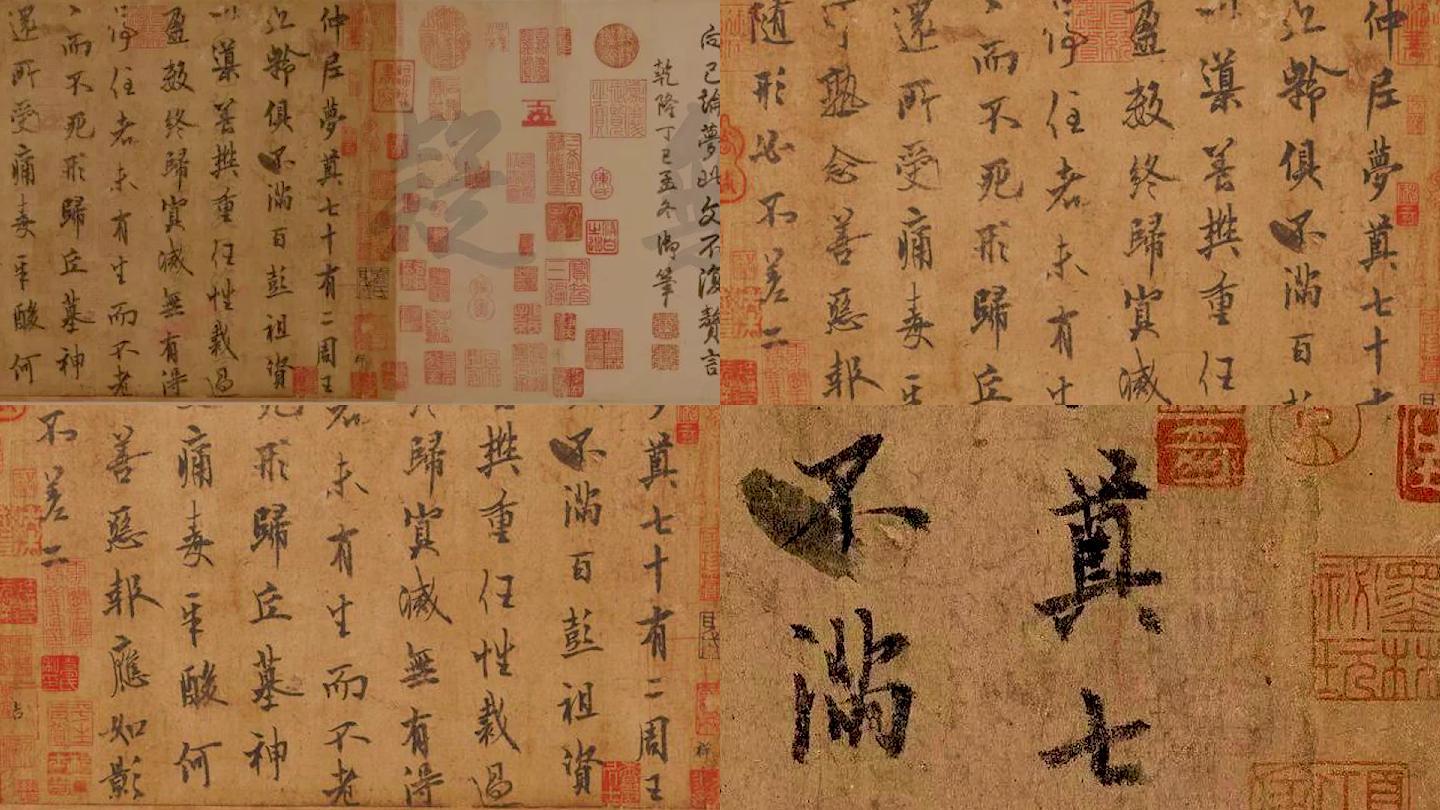 向已論夢此文不復贅言
乾隆丁巳孟冬御筆
無疑
仲尼夢奠七十有二周王
九齡俱不滿百彭祖資
以導養樊重任性裁過
盈數終歸冥滅無有得
停住者未有生而不老
而不死形歸丘墓神
還所受痛毒辛酸何
仲尼夢奠七十有
九齡俱不滿百
導養樊重任
盈數終歸冥滅
停住者未有生
而不死形歸丘
還所受痛毒辛
可熟念善惡報
隨形必不差二
奠七十有二周王
不滿百彭祖資
樊重任性裁過
歸冥滅無有得
者未有生而不老
死形歸丘墓神
痛毒辛酸何
善惡報應如影
不差二
奠七
不滿